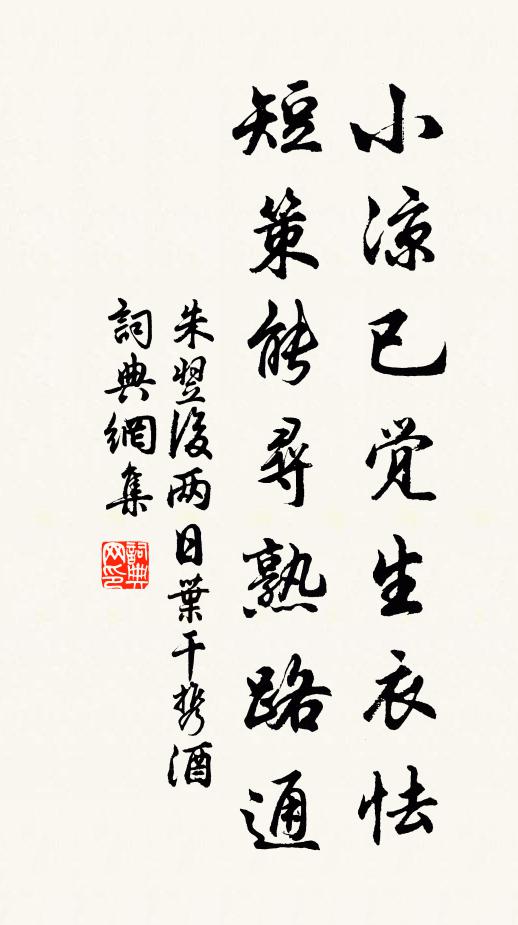 小凉已觉生衣怯
短策能尋熟路通
朱翌後两日葉干携酒
詞典網集
詞典
网印